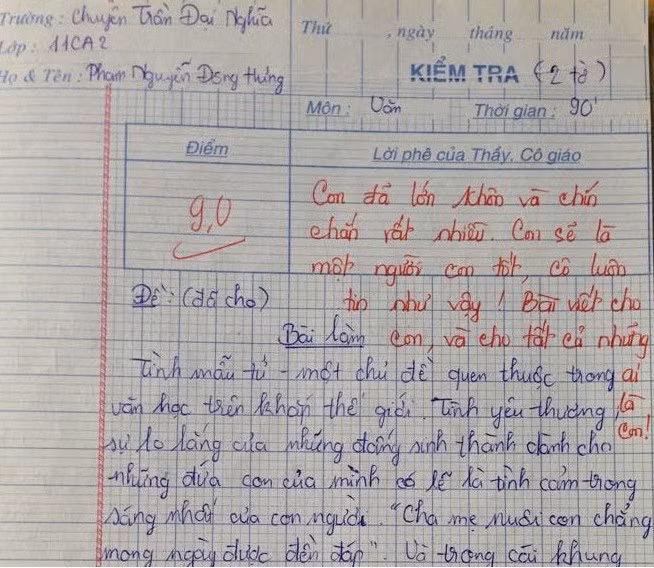 Trường: Chuyên Trần Đại Nghĩa
Thứ , ngày tháng năm
Lớp: 11CA2
Họ & Tên: Phạm Nguyễn Đông Hưng
KIỂM TRA (2 tờ)
Môn: Văn Thời gian: 90'
Điểm
Lời phê của Thầy, Cô giáo
9,0
Con đã lớn khôn và chín
chắn rất nhiều. Con sẽ là
một người con tốt, cô luôn
tin như vậy! Bài viết cho
con, và cho tất cả những
ai
là
con!
Đề: (đã cho)
Bài làm
Tình mẫu tử - một chủ đề quen thuộc trong
văn học trên khắp thế giới. Tình yêu thương,
sự lo lắng của những đấng sinh thành dành cho
những đứa con của mình có lẽ là tình cảm trong
sáng nhất của con người. "Cha mẹ nuôi con chẳng
mong ngày được đền đáp". Và trong cái khung